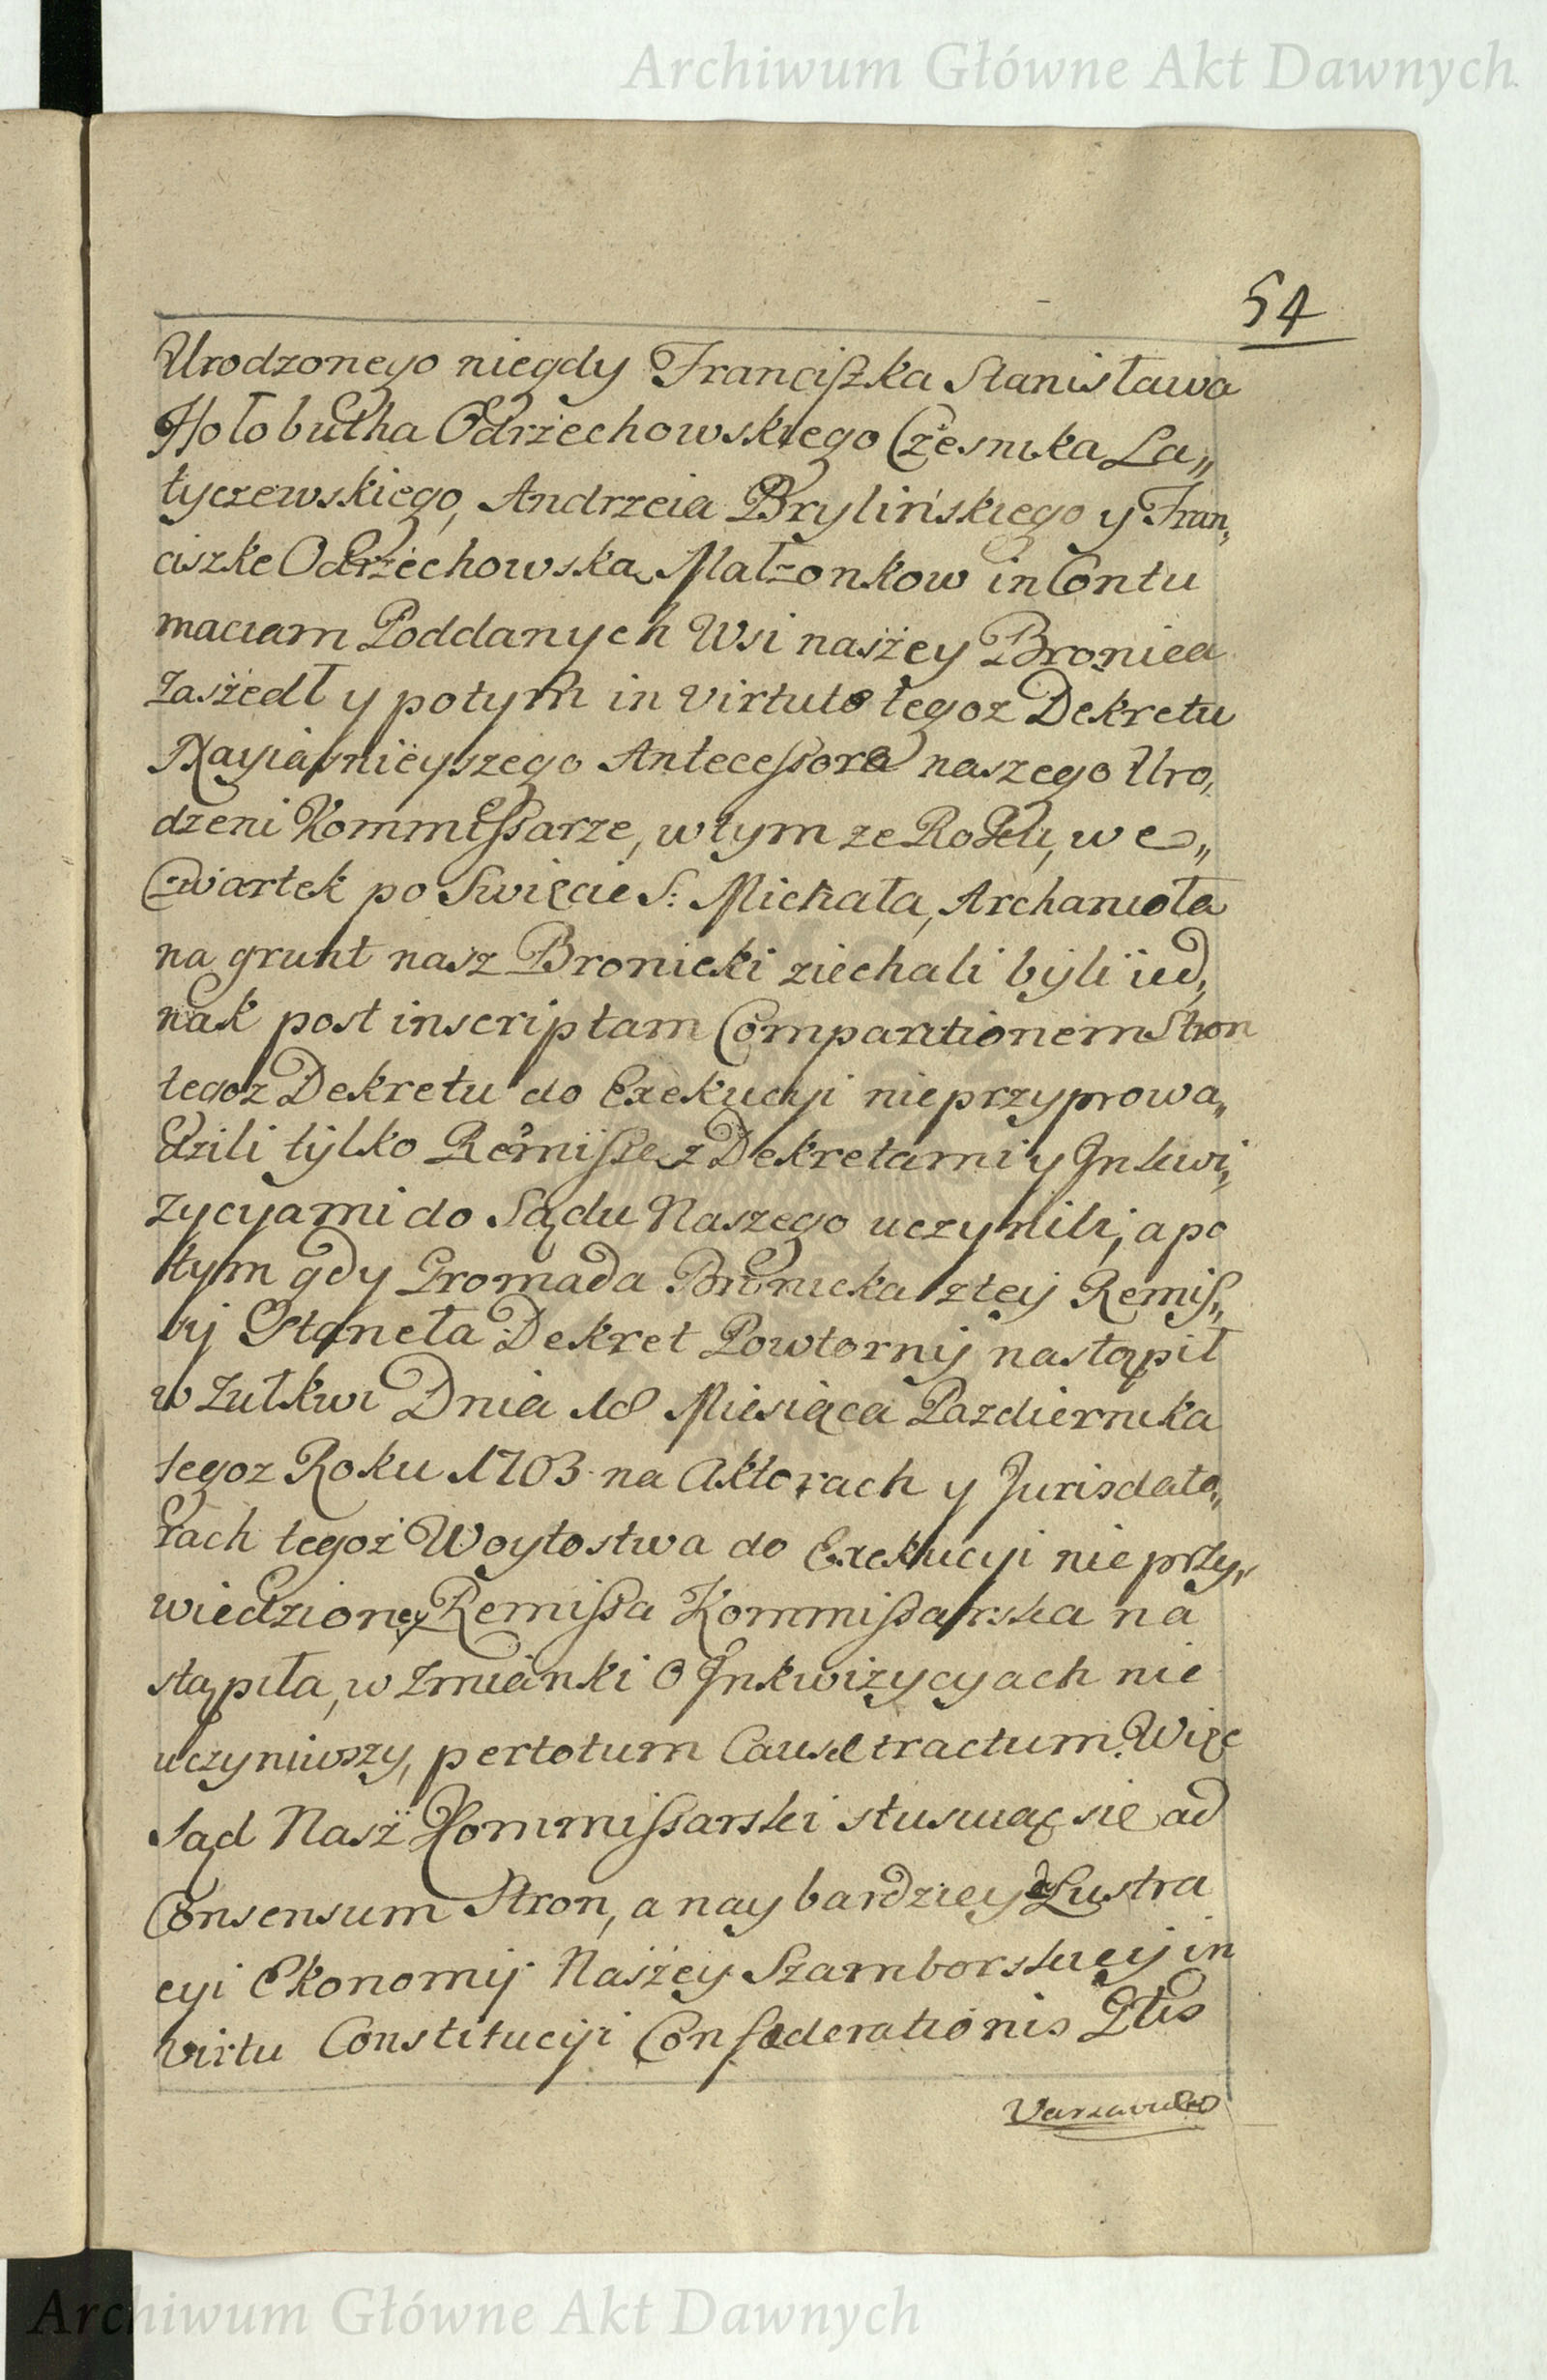 Archiwum Główne Akt Dawnych
54
Urodzonego niegdy Franciszka Stanisława
Hołobutha Odrzechowskiego Cześnika La„
tyczewskiego, Andrzeia Brylińskiego y Fran„
ciszke Odrzechowska Małzonkow in Contu
maciam Poddanych Wsi naszey Bronica
zaszedł y potym in virtute tegoz Dekretu
Nayiasnieyszego Antecessora naszego Uro„
dzeni Kommissarze, w tym ze Roku, we„
Czwartek po Swięcie S: Michała, Archanioła
na grunt nasz Bronicki ziechali byli ied„
nak post inscriptam Comparitionem Stron
tegoz Dekretu do Exekucyi nieprzyprowa„
dzili tylko Remisse z Dekretami y Inkwi„
zycyami do Sądu Naszego uczynili, a po
tym gdy Gromada Bronicka z tey Remis„
syi Staneła Dekret Powtorny nastąpił
w Zułkwi Dnia 18 Miesiąca Pazdiernika
tegoz Roku 1703 na Aktorach y Jurisdato„
rach tegoż Woytostwa do Exekucyi nie przy„
wiedzioney Remissa Kommissarska na
stąpiła, w Zmianki o Inkwizycyach nie
uczyniwszy, per totum Causæ tractum. Więc
Sąd Nasz Kommissarski stusuiąc się ad
Consensum Stron, a naybardziey do Lustra
cyi Ekonomij Naszey Szamborskiey in
virtu Constitucyi Confæderationis Glis
Varsaviæ
Archiwum Główne Akt Dawnych